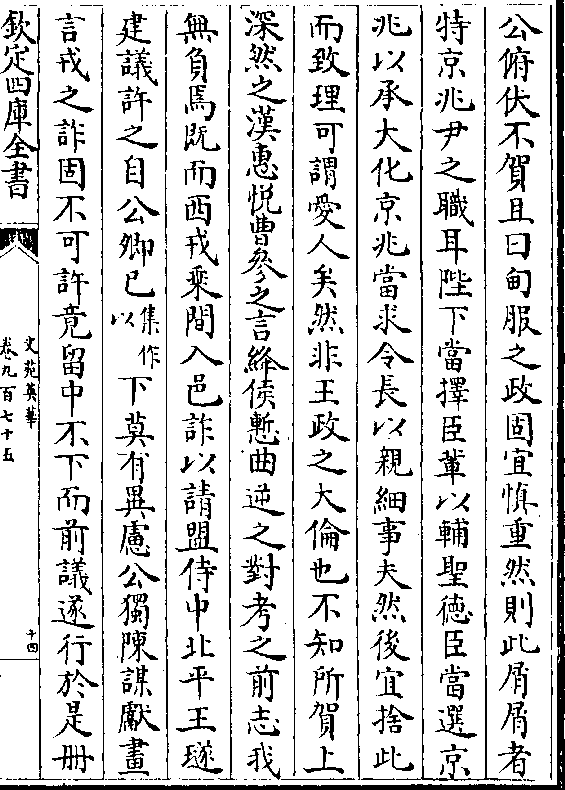 公俯伏不賀且曰甸服之政固宜慎重然則此屑屑者
特京兆尹之職耳陛下當擇臣輩以輔聖徳臣當選京
兆以承大化京兆當求令長以親細事夫然後宜捨此
而致理可謂愛人矣然非王政之大倫也不知所賀上
深然之漢惠悦曹參之言絳侯慙曲逆之對考之前志我
無負焉既而西戎乘間入邑詐以請盟侍中北平王璲
建議許之自公卿已集作以下莫有異慮公獨陳謀獻畫
言戎之詐固不可許竟留中不下而前議遂行於是册
欽定四庫全書
文苑英華
卷九百七十五
十四